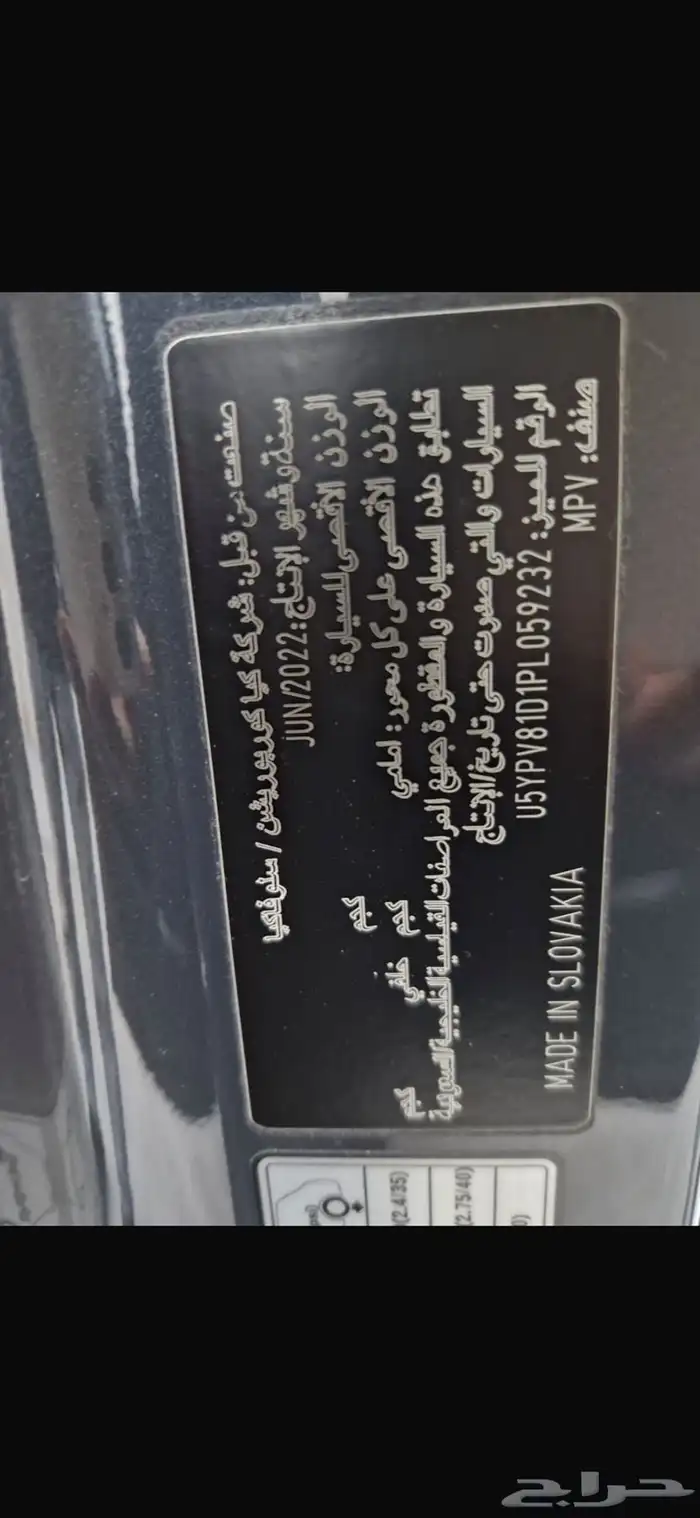 صنعت من قبل: شركة كيا كوربوريشن / سلوفاكيا
سنة و شهر الإنتاج: JUN/2022
الوزن الأقصى للسيارة: كجم
الوزن الأقصى على كل محور: امامي كجم خلفي كجم
تطابق هذه السيارة و المقطورة جميع المواصفات القياسية الخليجية السعودية
السيارات والتي صدرت حتى تاريخ/الإنتاج
الرقم المميز: U5YPV81D1PL059232 MADE IN SLOVAKIA
صنف: MPV
(2.4/35)
(2.75/40)
حراج